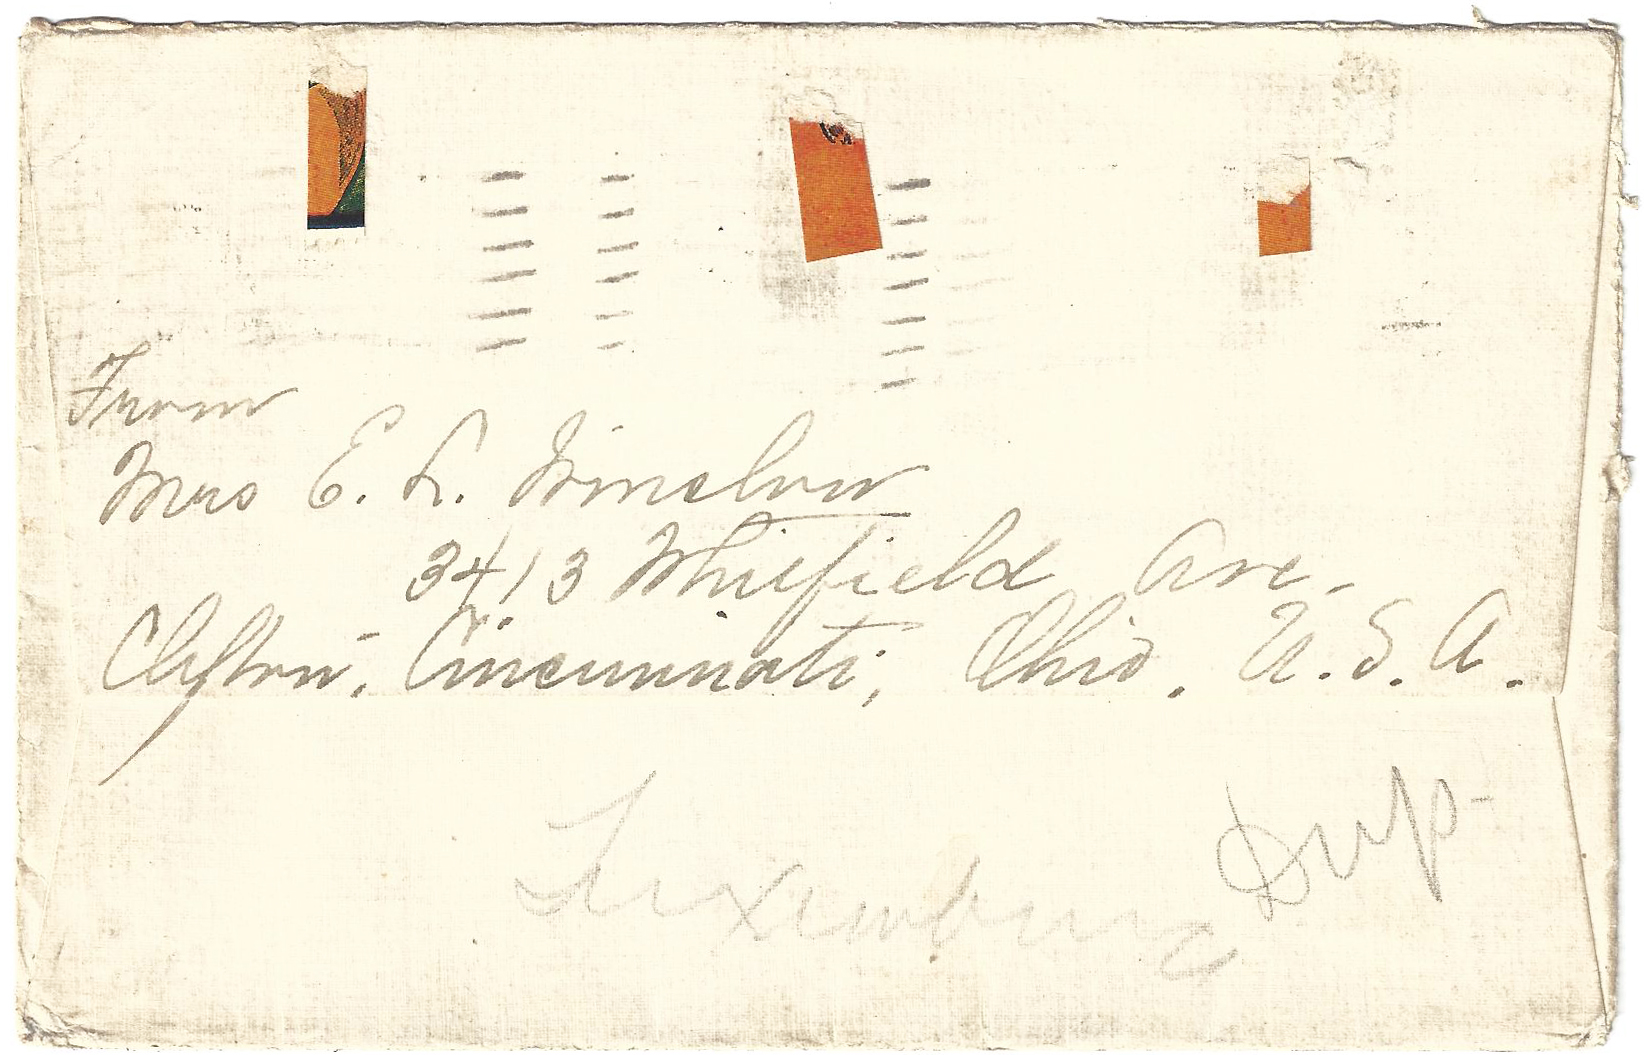 From
Mrs E. L. Winslow
3413 Whitfield Ave.
Clifton, Cincinnati, Ohio. U.S.A.
Luxemburg
Dup-